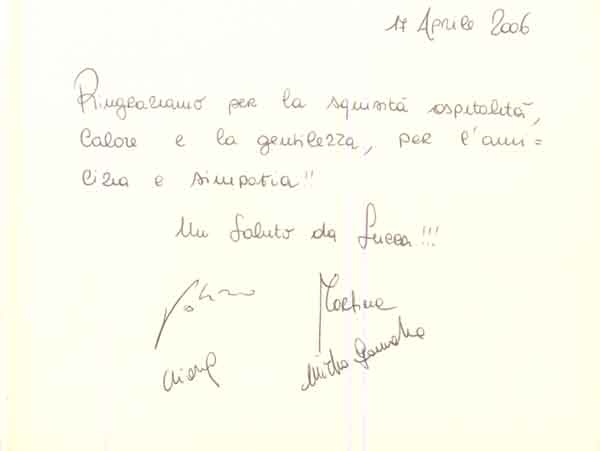 17 Aprile 2006
Ringraziamo per la squisità ospitalità,
Calore e la gentilezza, per l'ami=
cizia e simpatia!!
Un Saluto da Lucca!!!
Martina
Chiara
Mirko